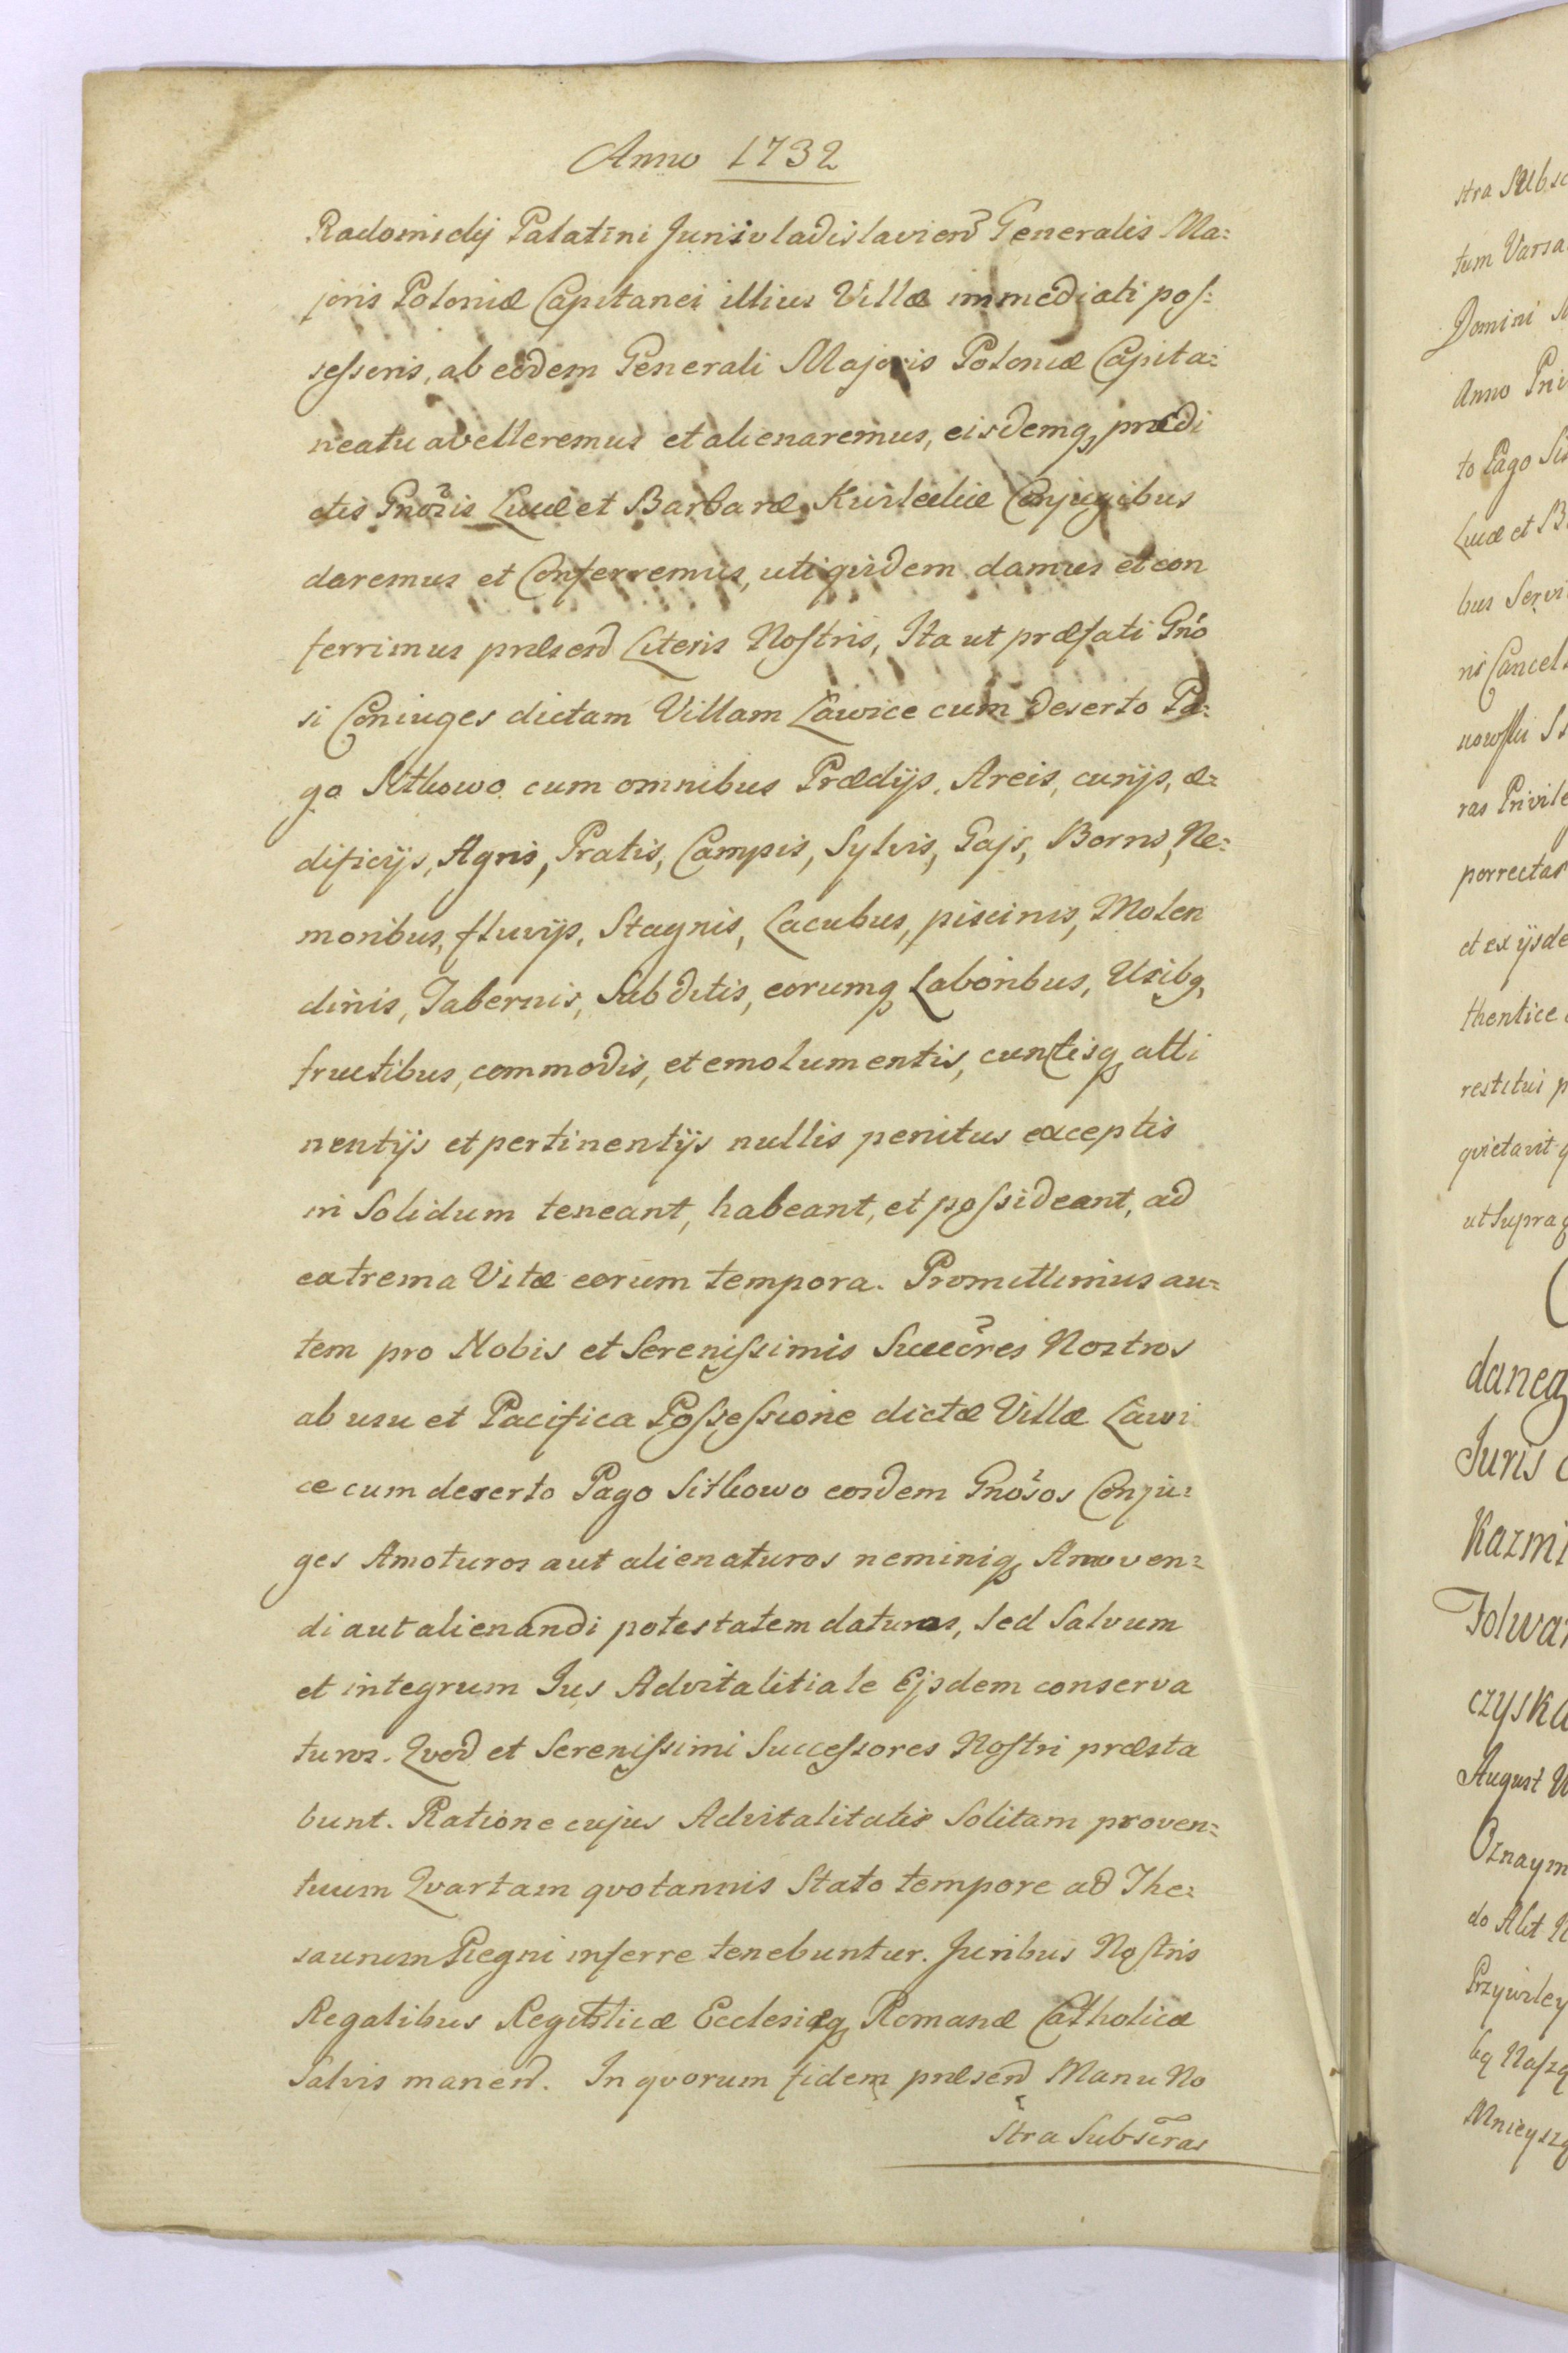 Anno 1732
Radomicky Palatini Juniuladislavien Generalis Ma=
joris Poloniæ Capitanei illius Villæ immediati pos=
sessoris, ab eodem Generali Majoris Poloniæ Capita=
neatu avelleremus et alienaremus, eisdemq prædi
ctis Gnosis Lucæ et Barbaræ Conjugibus
daremus et Conferremus, uti quidem damus et con
ferrimus præsen Literis Nostris, Ita ut præfati Gno
si Coniuges dictam Villam Ławice cum deserto Pa=
go Sitkowo cum omnibus Prædijs, Areis, curijs, æ=
dificijs, Agris, Pratis, Campis, Sylvis, Gajs, Borris, Ne=
moribus, fluvijs, Stagnis, Lacubus, piscinis, Molen
dinis, Tabernis, Subditis, eorumq Laboribus, Usibq,
fructibus, commodis, et emolumentis, cunctisq atti
nentijs et pertinentijs nullis penitus exceptis
in Solidum teneant, habeant, et possideant, ad
extrema Vitæ eorum tempora. Promittimus au=
tem pro Nobis et Serenissimis Succeores Nostros
ab usu et Pacifica Possessione dictæ Villæ Ławi
ce cum deserto Pago Sitkowo eosdem Gnosos Conju=
ges Amoturos aut alienaturos neminiq Amoven=
di aut alienandi potestatem daturos, sed Salvum
et integrum Jus Advitalitiale Ejsdem conserva
turos. Qvod et Serenissimi Successores Nostri præsta
bunt. Ratione cujus Advitalitatis Solitam proven=
tuum Qvartam qvotannis Stato tempore ad The=
saurum Regni inferre tenebuntur. Juribus Nostris
Regalibus Regitblicæ Ecclesiæq Romanæ Catholicæ
Salvis manen. In qvorum fidem præsen Manu No
stra Subscras
stra Subsc
tum Varsa
Domini
Anno Pri
to Pago Si
Lucæ et B
bus Servi
ris Cancel
nowski
ras Privile
porrectas
et ex ijsde
thentice
restitui p
qvietavit q
ut Supra q
daneg
Juris
Kazmi
Folwar
czyska
August
Oznaym
do Akt
Przywiley
Naszą
Mnieyszą